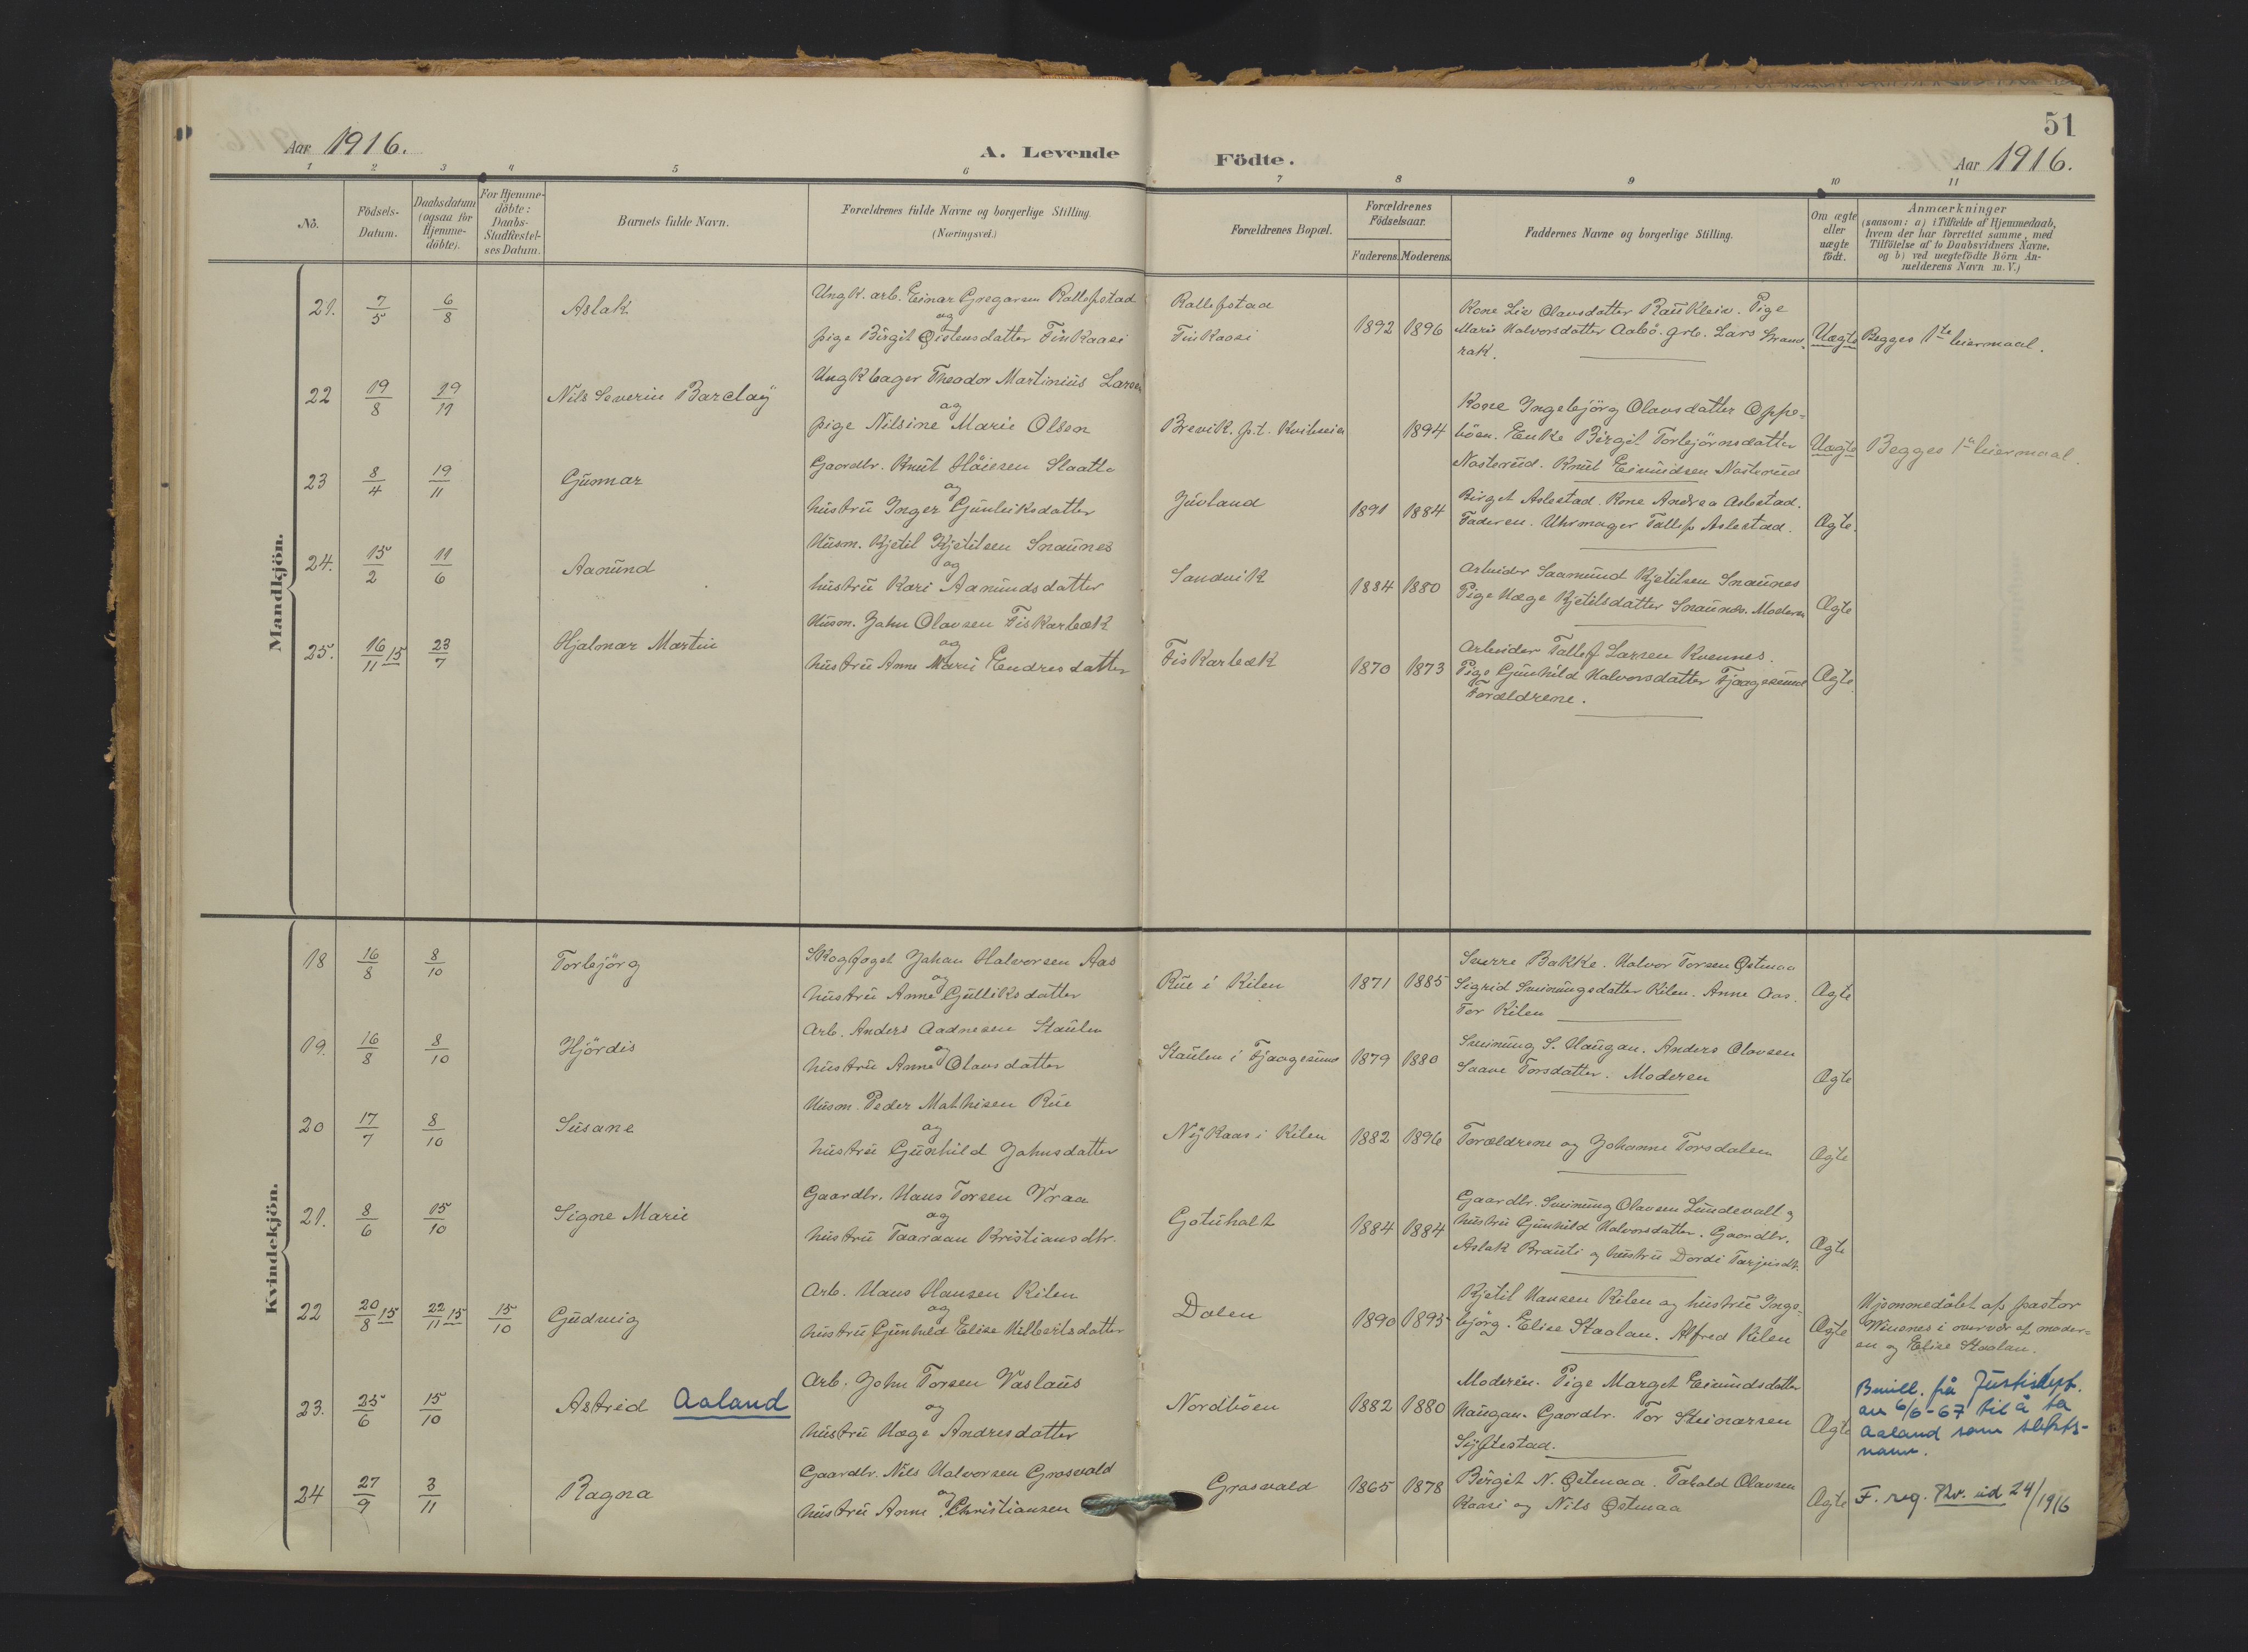 51
Aar 1916.
A. Levende
Födte.
Aar 1916.
1 2 3 4 5 6 7 8 9 10 11
No.
Födsels-
Datum.
Daabsdatum
(ogsaa for
Hjemme-
döbte).
For Hjemme-
döbte:
Daabs-
Stadfæstel-
ses Datum.
Barnets fulde Navn.
Forældrenes fulde Navne og borgerlige Stilling.
(Næringsvei.)
Forældrenes Bopæl.
Forældrenes
Födselsaar.
Faderens. Moderens.
Faddernes Navne og borgerlige Stilling.
Om ægte
eller
uægte
födt.
Anmærkninger
(saasom: a) i Tilfælde af Hjemmedaab,
hvem der har forrettet samme, med
Tilföielse af to Daabsvidners Navne,
og b) ved uægtefödte Börn An-
melderens Navn m. V.)
Mandkjön.
21. 7/5 6/8 Aslak
Ungk. arb. Einar Gregarsen Rallefstad
og
pige Birgit Øistensdatter Finkaasi
Rallefstaa
Finkaasi
1892 1896
Kone Liv Olavsdatter Rauklein. Pige
Marie Halvorsdatter Aabö. Grb. Lars Strand-
rak.
Uægte
Begges 1te leiermaal.
22 19/8 19/11 Nils Severin Barclay
Ungk bager Theodor Martinius Larsen
og
pige Nilsine Marie Olsen
Brevik. p.t. Kviteseid
1894
Kone Ingebjörg Olavsdatter Oppe-
böen. Enke Birgit Torbjörnsdatter
Nasterud. Knut Eivindsen Nasterud
Uægte
Begges 1te leiermaal.
23 8/4 19/11 Gunnar
Gaardbr. Knut Höiesen Slaatta
og
hustru Inger Gunleiksdatter
Juvland
1891 1884
Birget Aslestad. Kone Andrea Aslestad.
Faderen. Uhrmager Tallef Aslestad.
Ægte.
24. 15/2 11/6 Aanund
Husm. Kjetil Kjetilsen Snaunes
og
hustru Kari Aanundsdatter
Sandvik
1884 1880
Arbeider Saamund Kjetilsen Snaunes
Pige Hæge Kjetilsdatter Snaunes. Moderen
Ægte
25. 16/11 15 23/7 Hjalmar Martin
Husm. John Olavsen Fiskarbæk
og
hustru Anne Marie Endresdatter
Fiskarbæk
1870 1873
Arbeider Tallef Larsen Kvennes.
Pige Gunhild Halvorsdatter Fjaagesund
Forældrene.
Ægte
Kvindekjön.
18 16/8 8/10 Torbjörg
Skogfoget Johan Halvorsen Aas
og
hustru Anne Gulliksdatter
Rue i Kilen
1871 1885
Snerre Bakke. Halvor Torsen Østmoa
Sigrid Sveinungsdatter Kilen. Anne Aas.
Tor Kilen
Ægte
19. 16/8 8/10 Hjördis
Arb. Anders Aadnesen Staulen
og
hustru Anne Olavsdatter
Staulen i Fjaagesund
1879 1880
Sveinung S. Haugan. Anders Olavsen
Saave Torsdatter. Moderen
Ægte
20 17/7 8/10 Susane
Husm. Peder Mathisen Rue
og
hustru Gunhild Johnsdatter
Nykaas i Kilen
1882 1896
Forældrene og Johanne Torsdalen
Ægte
21. 8/6 15/10 Signe Marie
Gaardbr. Hans Torsen Vraa
og
hustru Taaraan Kristiansdtr.
Gotuholt
1884 1884
Gaardbr. Sveinung Olavsen Lundevall og
hustru Gunhild Halvorsdatter. Gaardbr.
Aslak Brauti og hustru Dordi Tarjeisdt.
Ægte
22 20/8 15 22/11 15 15/10 Gudveig
Arb. Hans Hansen Kilen
og
hustru Gunhild Elise Hilbertsdatter
Dalen
1890 1895
Kjetil Hansen Kilen og hustru Inge-
björg. Elise Staalan. Alfred Kilen
Ægte
Hjemmedöbt af pastor
Winsnes i overvær af moder-
en og Elise Staalan.
23. 25/6 15/10 Astrid Aaland
Arb. John Torsen Vaslaus
og
hustru Hæge Andresdatter
Nordböen
1882 1880
Moderen. Pige Marget Eivindsdatter
Haugan. Gaardbr. Tor Steinarsen
Syftestad.
Ægte
Bevill. frå Justisdept.
av 6/6-67 til å ta
Aaland som slekts-
namn.
24 27/9 3/11 Ragna
Gaardbr. Nils Halvorsen Grasvald
og
hustru Anne Christiansen
Grasvald
1865 1878
Birgit N. Østmoa. Tabald Olavsen
Kaasi og Nils Østmoa
Ægte
F. reg. Kv.ud 24/1916